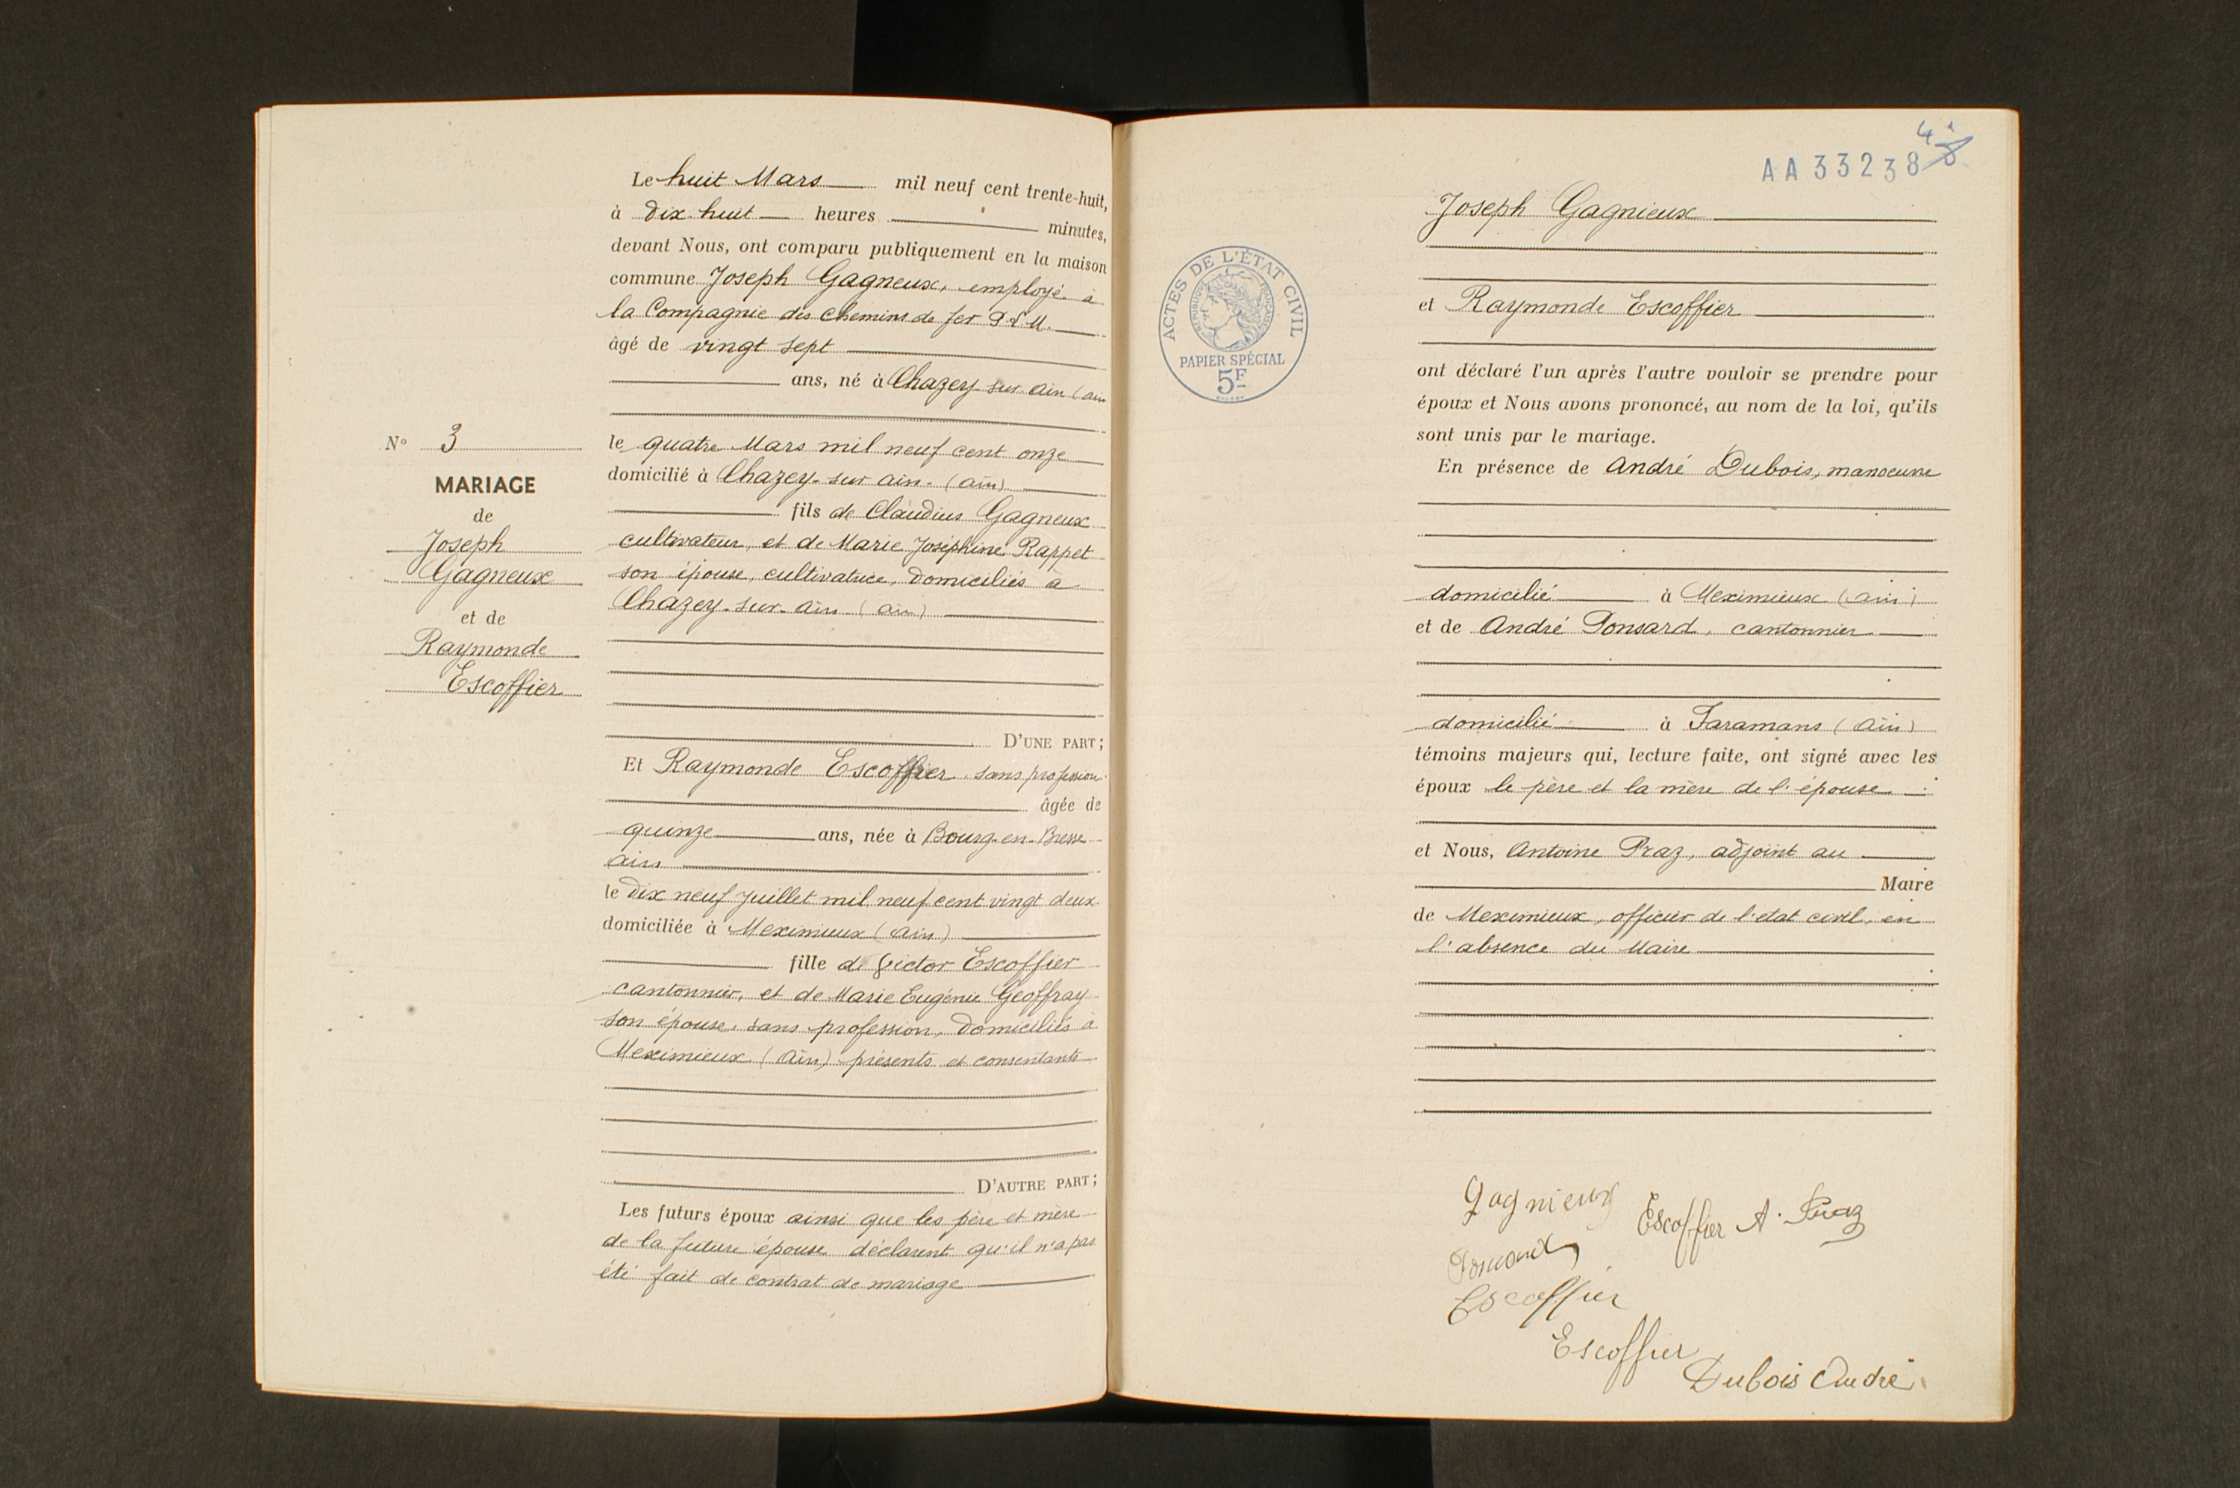 Le huit Mars mil neuf cent trente-huit,
à dix-huit heures minutes,
devant Nous, ont comparu publiquement en la maison
commune Joseph Gagneux, employé à
la Compagnie des chemins de fer P.L.M.
âgé de vingt sept
ans, né à Chazey-sur-ain (ain
le quatre Mars mil neuf cent onze
domicilié à Chazey-sur-ain (ain)
fils de Claudius Gagneux
cultivateur, et de Marie Joséphine Rappet
son épouse, cultivatrice, domiciliés à
Chazey-sur-ain (ain)
D'UNE PART;
Et Raymonde Escoffier, sans profession
âgée de
quinze ans, née à Bourg-en-Bresse
ain
le dix neuf juillet mil neuf cent vingt deux
domiciliée à Meximieux (ain)
fille de Victor Escoffier
cantonnier, et de Marie Eugénie Geoffray
son épouse, sans profession, domiciliés à
Meximieux (ain) présents et consentants
D'AUTRE PART;
Les futurs époux ainsi que les père et mère
de la future épouse déclarent qu'il n'a pas
été fait de contrat de mariage
N° 3
MARIAGE
de
Joseph
Gagneux
et de
Raymonde
Escoffier
AA33238
4
ACTES DE L'ÉTAT CIVIL
RÉPUBLIQUE FRANÇAISE
PAPIER SPÉCIAL
5F
Joseph Gagnieux
et Raymonde Escoffier
ont déclaré l'un après l'autre vouloir se prendre pour
époux et Nous avons prononcé, au nom de la loi, qu'ils
sont unis par le mariage.
En présence de André Dubois, manoeuvre
domicilié à Meximieux (ain)
et de André Ponsard, cantonnier
domicilié à Faramans (ain)
témoins majeurs qui, lecture faite, ont signé avec les
époux le père et la mère de l'épouse
et Nous, Antoine Praz, adjoint au
Maire
de Meximieux, officier de l'état civil, en
l'absence du Maire
Gagnieux
Escoffier A. Praz
Ponsard
Escoffier
Escoffier
Dubois André